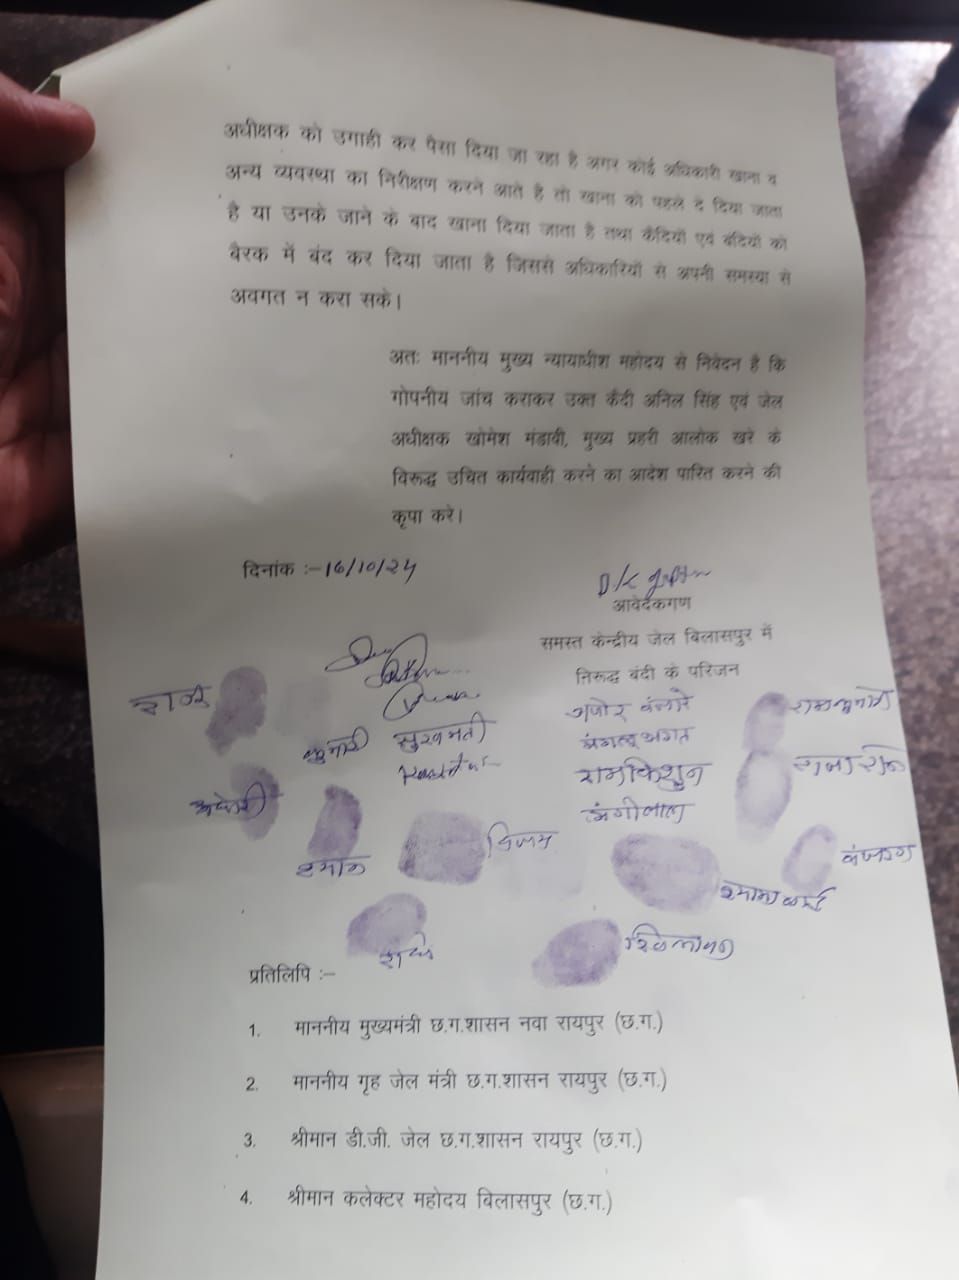 अधीक्षक को उगाही कर पैसा दिया जा रहा है अगर कोई अधिकारी खाना व
अन्य व्यवस्था का निरीक्षण करने आते है तो खाना को पहले दे दिया जाता
है या उनके जाने के बाद खाना दिया जाता है तथा कैदियों एवं बंदियों को
बैरक में बंद कर दिया जाता है जिससे अधिकारियों से अपनी समस्या से
अवगत न करा सके।
अतः माननीय मुख्य न्यायाधीश महोदय से निवेदन है कि
गोपनीय जांच कराकर उक्त कैदी अनिल सिंह एवं जेल
अधीक्षक खोमेश मंडावी, मुख्य प्रहरी आलोक खरे के
विरूद्ध उचित कार्यवाही करने का आदेश पारित करने की
कृपा करे।
दिनांक :-16/10/24
आवेदकगण
समस्त केन्द्रीय जेल बिलासपुर में
निरूद्ध बंदी के परिजन
कुमारी सुखमती
रामकिशुन
प्रतिलिपि :-
1. माननीय मुख्यमंत्री छ.ग.शासन नवा रायपुर (छ.ग.)
2. माननीय गृह जेल मंत्री छ.ग.शासन रायपुर (छ.ग.)
3. श्रीमान डी.जी. जेल छ.ग.शासन रायपुर (छ.ग.)
4. श्रीमान कलेक्टर महोदय बिलासपुर (छ.ग.)